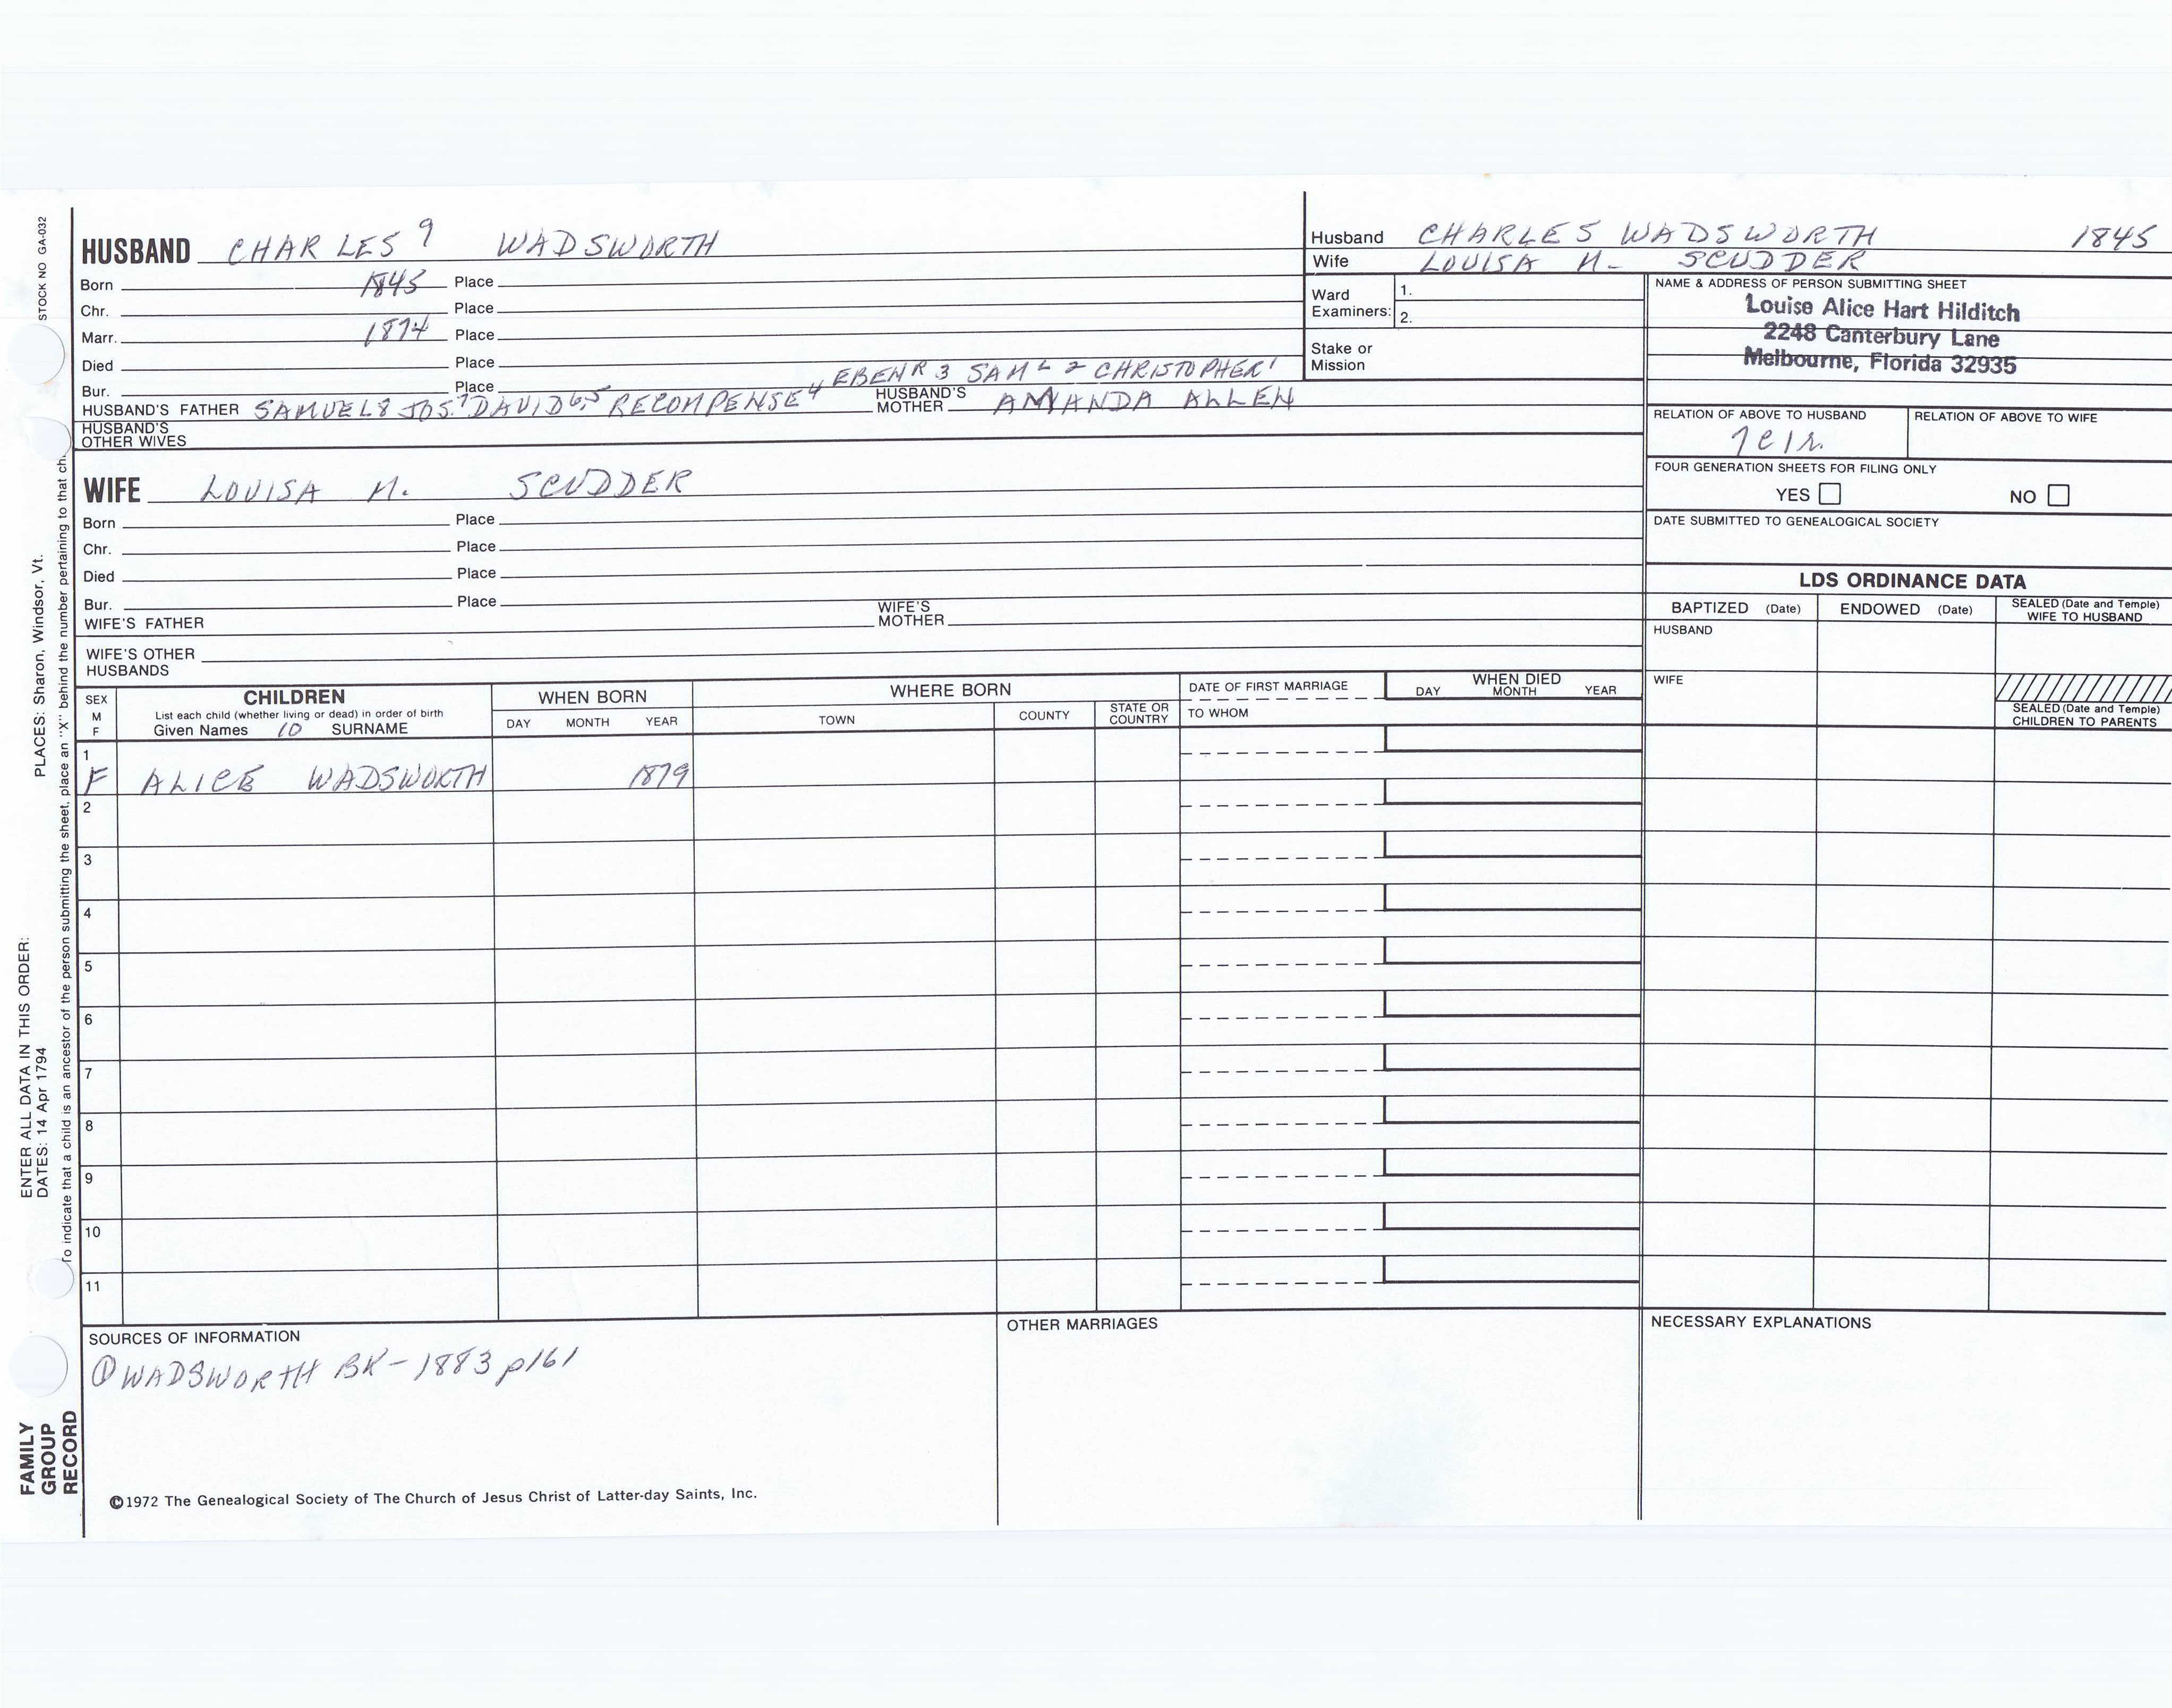 STOCK NO GA-032
PLACES: Sharon, Windsor, Vt.
ENTER ALL DATA IN THIS ORDER:
DATES: 14 Apr 1794
To indicate that a child is an ancestor of the person submitting the sheet, place an "X" behind the number pertaining to that ch.
FAMILY
GROUP
RECORD
HUSBAND CHARLES 9 WADSWORTH
Born 1845 Place
Chr. Place
Marr. 1874 Place
Died Place
Bur. Place
EBENR 3 SAML 2 CHRISTOPHER 1
HUSBAND'S FATHER SAMUEL 8 JOS. 7 DAVID 6,5 RECOMPENSE 4 HUSBAND'S MOTHER AMANDA ALLEN
HUSBAND'S
OTHER WIVES
WIFE LOUISA M. SCUDDER
Born Place
Chr. Place
Died Place
Bur. Place
WIFE'S FATHER WIFE'S MOTHER
WIFE'S OTHER
HUSBANDS
Husband CHARLES WADSWORTH 1845
Wife LOUISA M. SCUDDER
Ward
Examiners:
1.
2.
Stake or
Mission
NAME & ADDRESS OF PERSON SUBMITTING SHEET
Louise Alice Hart Hilditch
2248 Canterbury Lane
Melbourne, Florida 32935
RELATION OF ABOVE TO HUSBAND RELATION OF ABOVE TO WIFE
7c1r.
FOUR GENERATION SHEETS FOR FILING ONLY
YES NO
DATE SUBMITTED TO GENEALOGICAL SOCIETY
LDS ORDINANCE DATA
BAPTIZED (Date) ENDOWED (Date) SEALED (Date and Temple)
WIFE TO HUSBAND
HUSBAND
WIFE
SEALED (Date and Temple)
CHILDREN TO PARENTS
SEX
M
F
CHILDREN
List each child (whether living or dead) in order of birth
Given Names 10 SURNAME
WHEN BORN
DAY MONTH YEAR
WHERE BORN
TOWN COUNTY STATE OR COUNTRY
DATE OF FIRST MARRIAGE
TO WHOM
WHEN DIED
DAY MONTH YEAR
1
F ALICE WADSWORTH 1879
2
3
4
5
6
7
8
9
10
11
SOURCES OF INFORMATION
① WADSWORTH BK - 1883 p161
OTHER MARRIAGES
NECESSARY EXPLANATIONS
©1972 The Genealogical Society of The Church of Jesus Christ of Latter-day Saints, Inc.